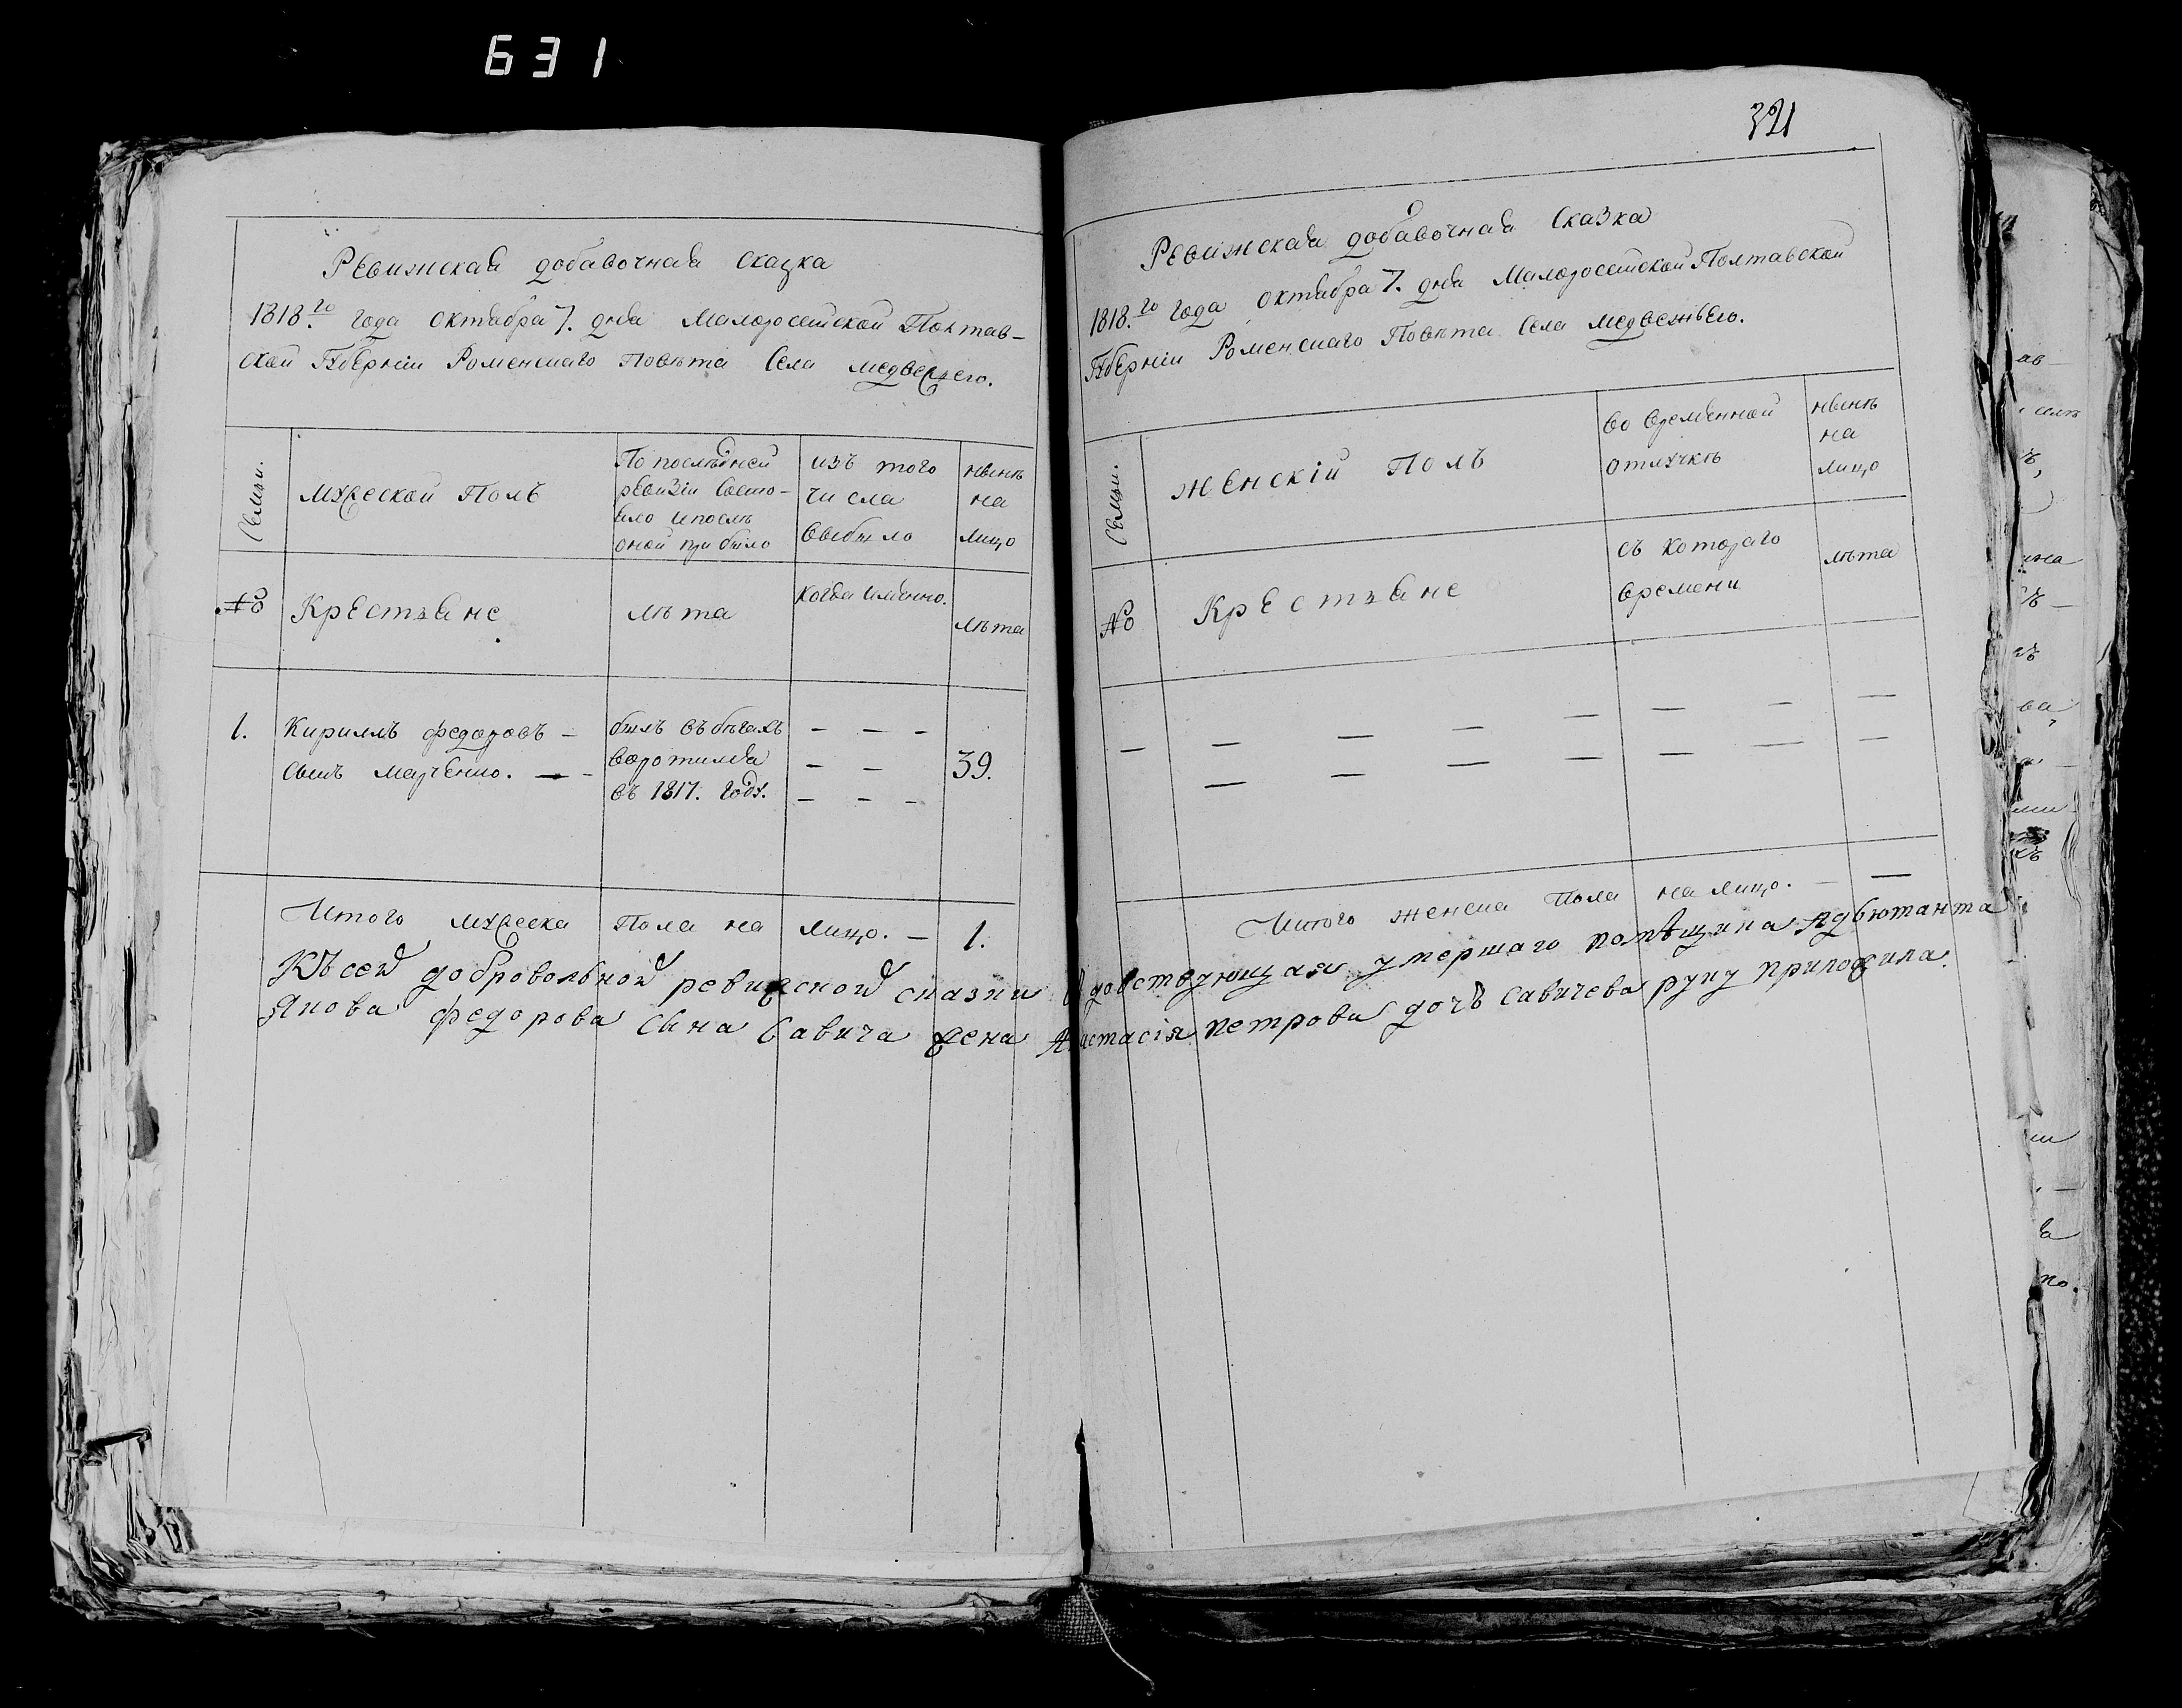 631
Ревижская добавочная сказка
1818.го года октября 7. дня Малоросийской Полтав-
ской Губерніи Роменскаго Повѣта Села медвежего.
Семьи.
мужеской Полъ
По послѣдней
ревизіи состо-
яло и послѣ
оной прибыло
изъ того
числа
выбыло
нынѣ
на
лицо
№
Крестьяне
лѣта
когда именно.
лѣта
1.
Кириллъ федоровъ —
сынъ марченко. — -
былъ въ бѣгахъ
воротился
въ 1817. году.
— — —
— —
— — —
39.
Итого мужеска Пола на лицо. — 1.
321
Ревижская добавочная Сказка
1818.го года октября 7. дня Малоросейской Полтавской
Губерніи Роменскаго Повѣта Села медвежьего.
Семьи.
женскій Полъ
во временной
отлучкѣ
нынѣ
на
лицо
№
Крестьяне
съ котораго
времени
лѣта
— — — — — — — —
— — — — — — —
Итого женска пола на лицо. — —
Къ сей добровольной ревижской сказки вдовствующая умершаго помѣщика Адьютанта
Якова федорова сына Савича жена Анастасія петрова дочь Савичева руку приложила.